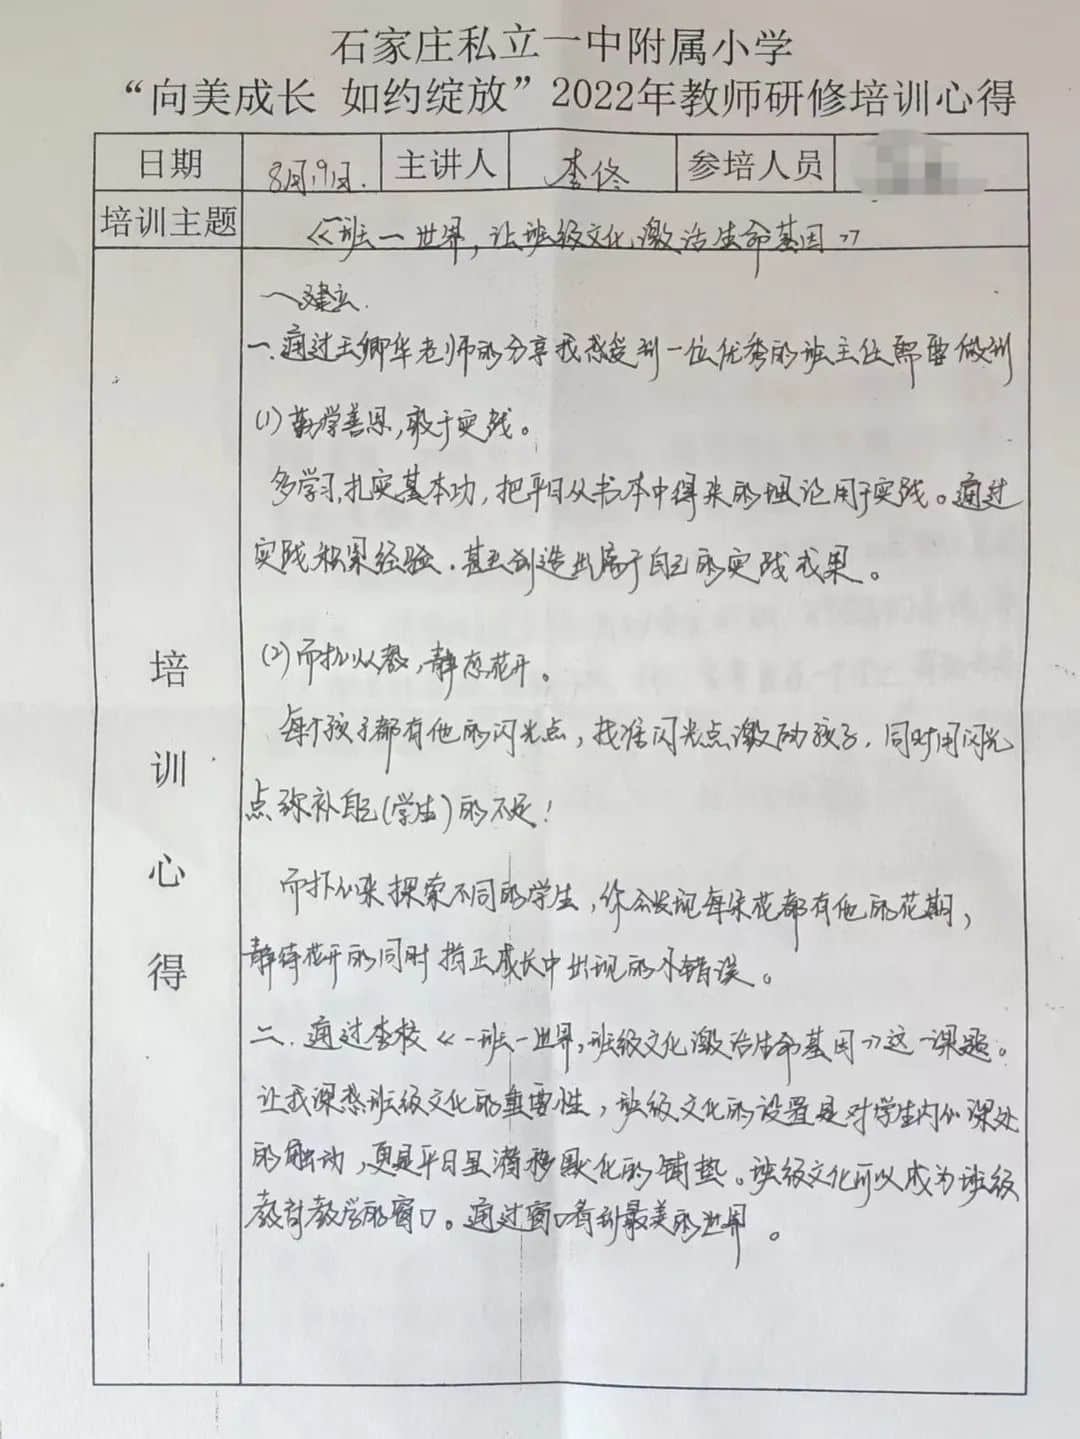 石家庄私立一中附属小学
“向美成长 如约绽放”2022年教师研修培训心得
日期 8月19日. 主讲人 李佟 参培人员
培训主题 《一班一世界，让班级文化激活生命基因》
一建立.
一.通过王卿华老师的分享我感受到一位优秀的班主任需要做到
(1)勤学善思,敢于实践。
多学习,扎实基本功,把平日从书本中得来的理论用于实践。通过
实践积累经验.甚至创造出属于自己的实践成果。
(2)而扑从教,静态花开。
每个孩子都有他的闪光点,找准闪光点激励孩子.同时用闪光
点弥补自己(学生)的不足!
而扑心来探索不同的学生,你会发现每朵花都有他的花期,
静待花开的同时指正成长中出现的小错误。
二.通过李校《一班一世界,班级文化激活生命基因》这一课题。
让我深感班级文化的重要性,班级文化的设置是对学生内心深处
的触动,更是平日里潜移默化的铺垫。班级文化可以成为班级
教育教学的窗口。通过窗口看到最美的世界。
培训心得